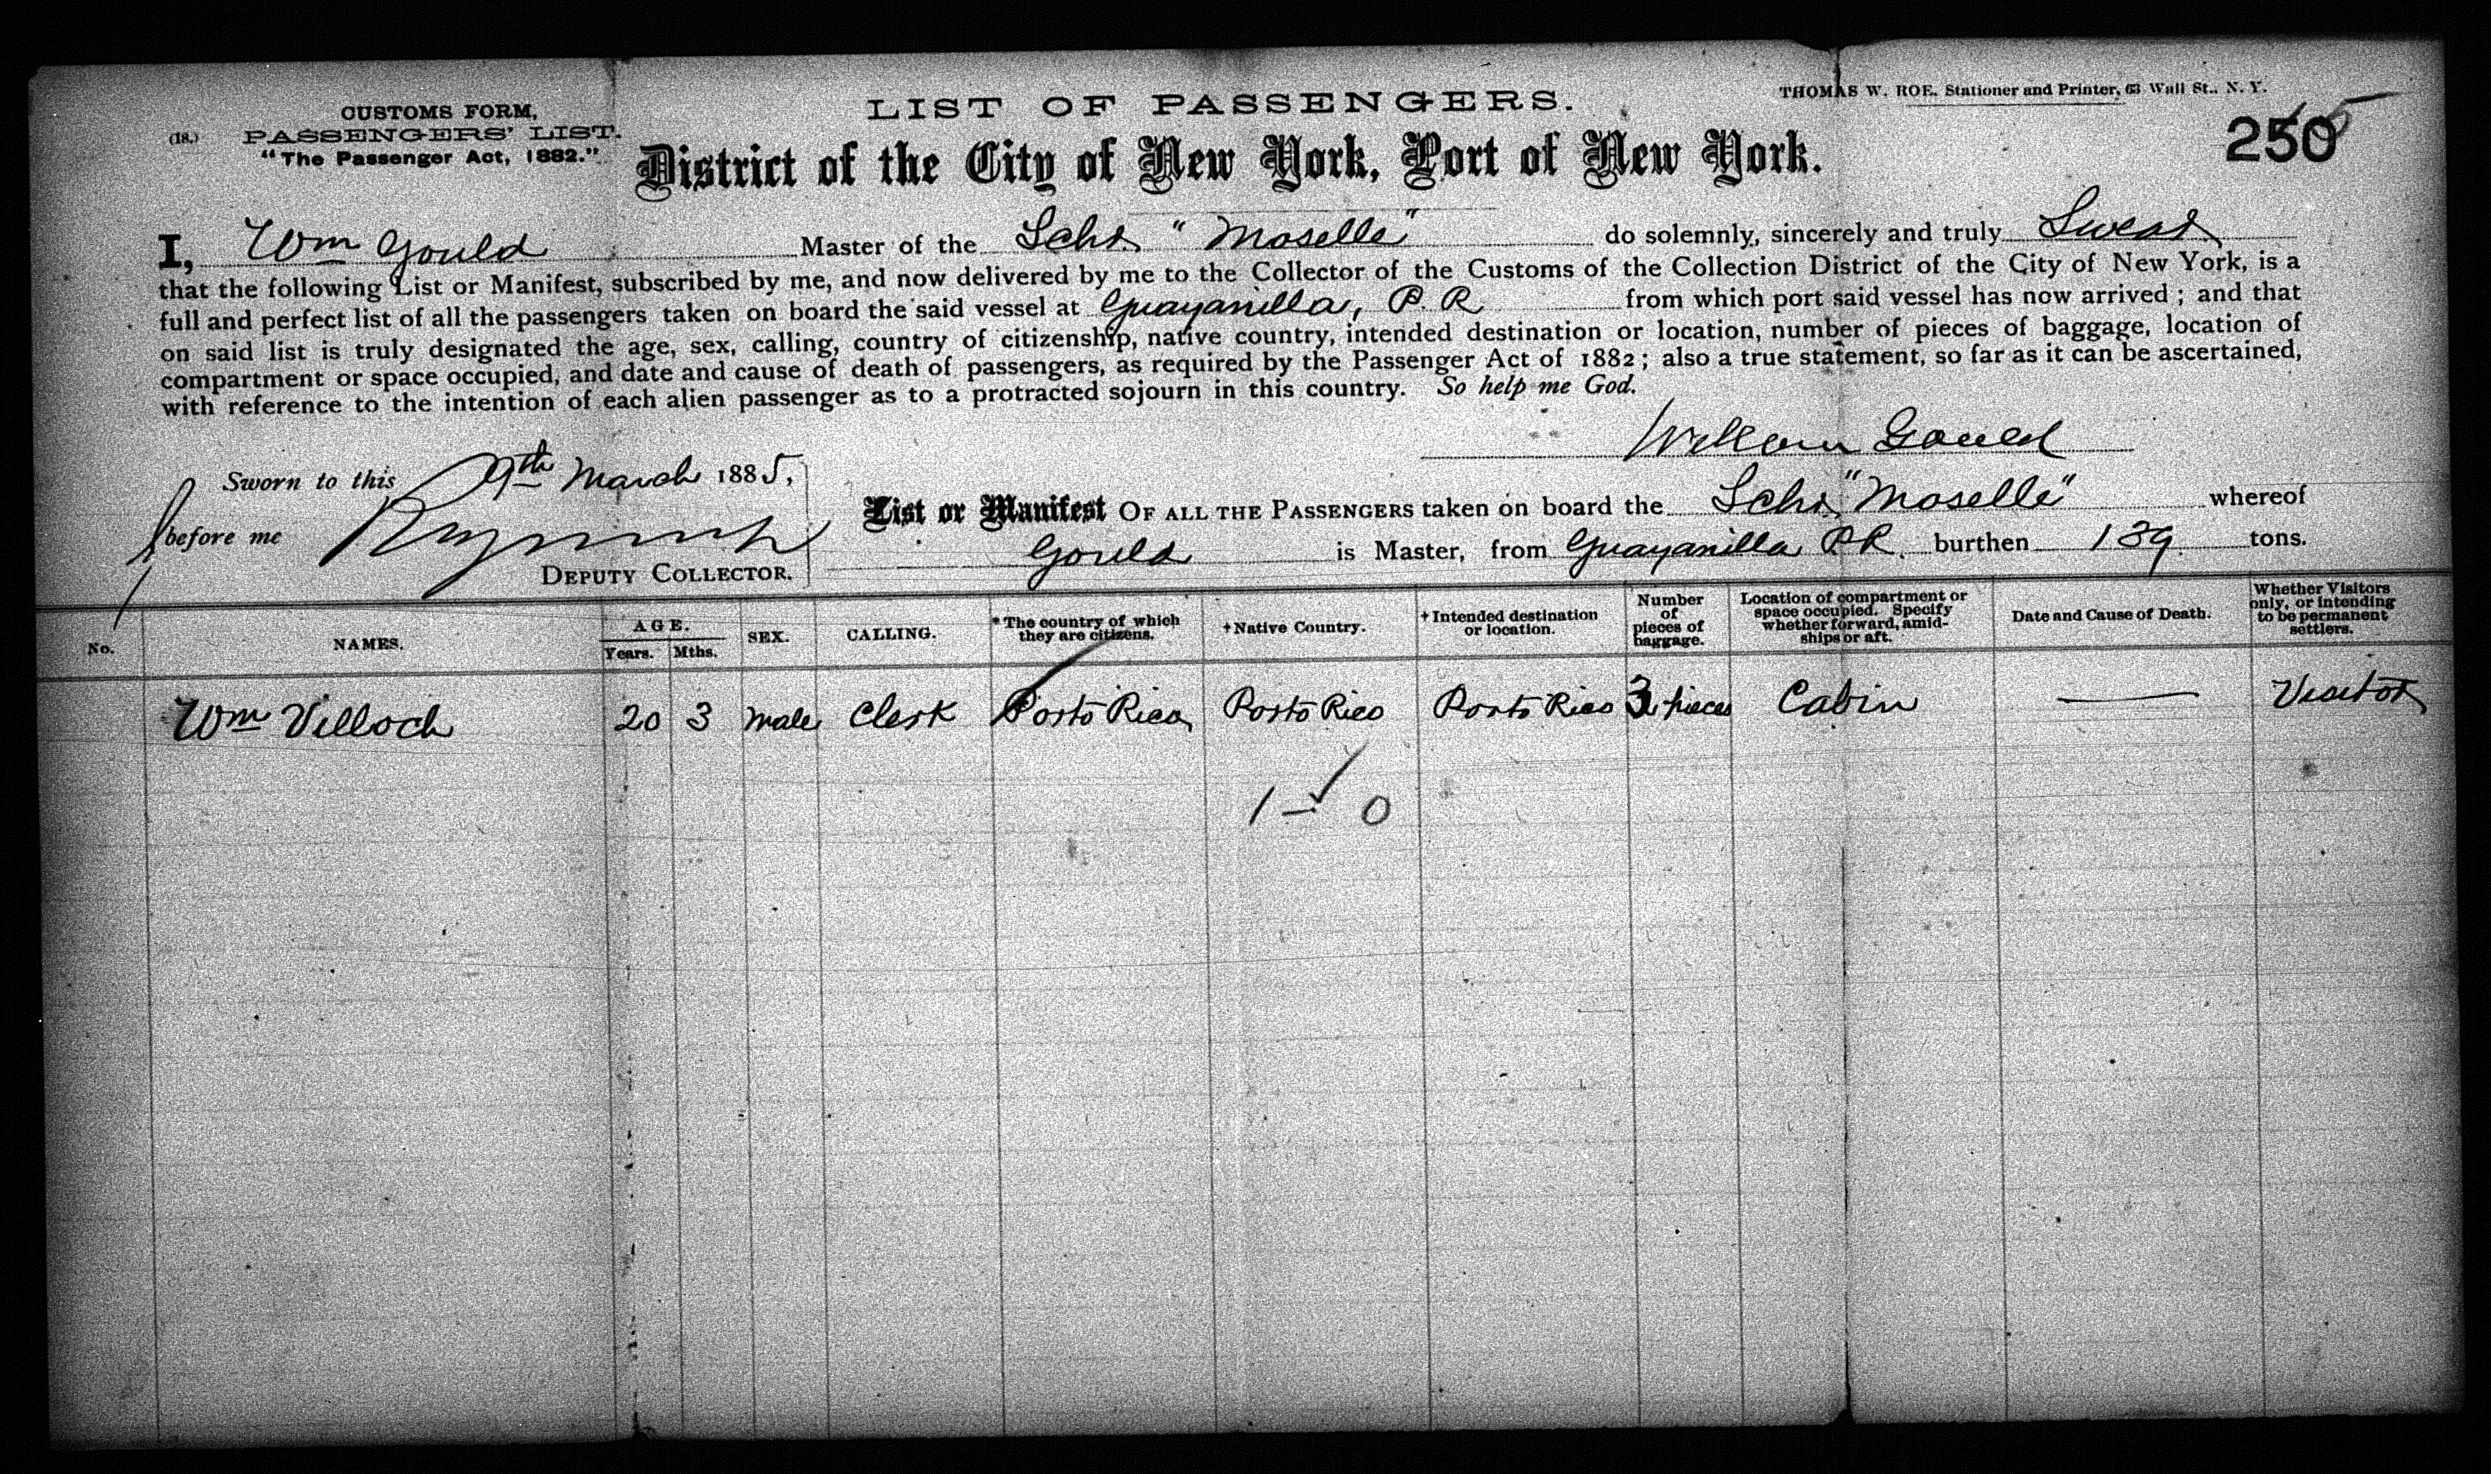 CUSTOMS FORM,
(18.) PASSENGERS' LIST.
"The Passenger Act, 1882."
LIST OF PASSENGERS.
THOMAS W. ROE, Stationer and Printer, 63 Wall St., N. Y.
250
District of the City of New York, Port of New York.
I, Wm Gould Master of the Schr "Moselle" do solemnly, sincerely and truly Swear
that the following List or Manifest, subscribed by me, and now delivered by me to the Collector of the Customs of the Collection District of the City of New York, is a
full and perfect list of all the passengers taken on board the said vessel at Guayanilla, P. R from which port said vessel has now arrived; and that
on said list is truly designated the age, sex, calling, country of citizenship, native country, intended destination or location, number of pieces of baggage, location of
compartment or space occupied, and date and cause of death of passengers, as required by the Passenger Act of 1882; also a true statement, so far as it can be ascertained,
with reference to the intention of each alien passenger as to a protracted sojourn in this country. So help me God.
William Gould
Sworn to this 9th March 1885,
before me
DEPUTY COLLECTOR.
List or Manifest OF ALL THE PASSENGERS taken on board the Schr "Moselle" whereof
Gould is Master, from Guayanilla P.R. burthen 139 tons.
No. NAMES. AGE. Years. Mths. SEX. CALLING. *The country of which they are citizens. +Native Country. +Intended destination or location. Number of pieces of baggage. Location of compartment or space occupied. Specify whether forward, amidships or aft. Date and Cause of Death. Whether Visitors only, or intending to be permanent settlers.
Wm Villoch 20 3 male Clerk Porto Rico Porto Rico Porto Rico 3 pieces Cabin — Visitor
1 - 0